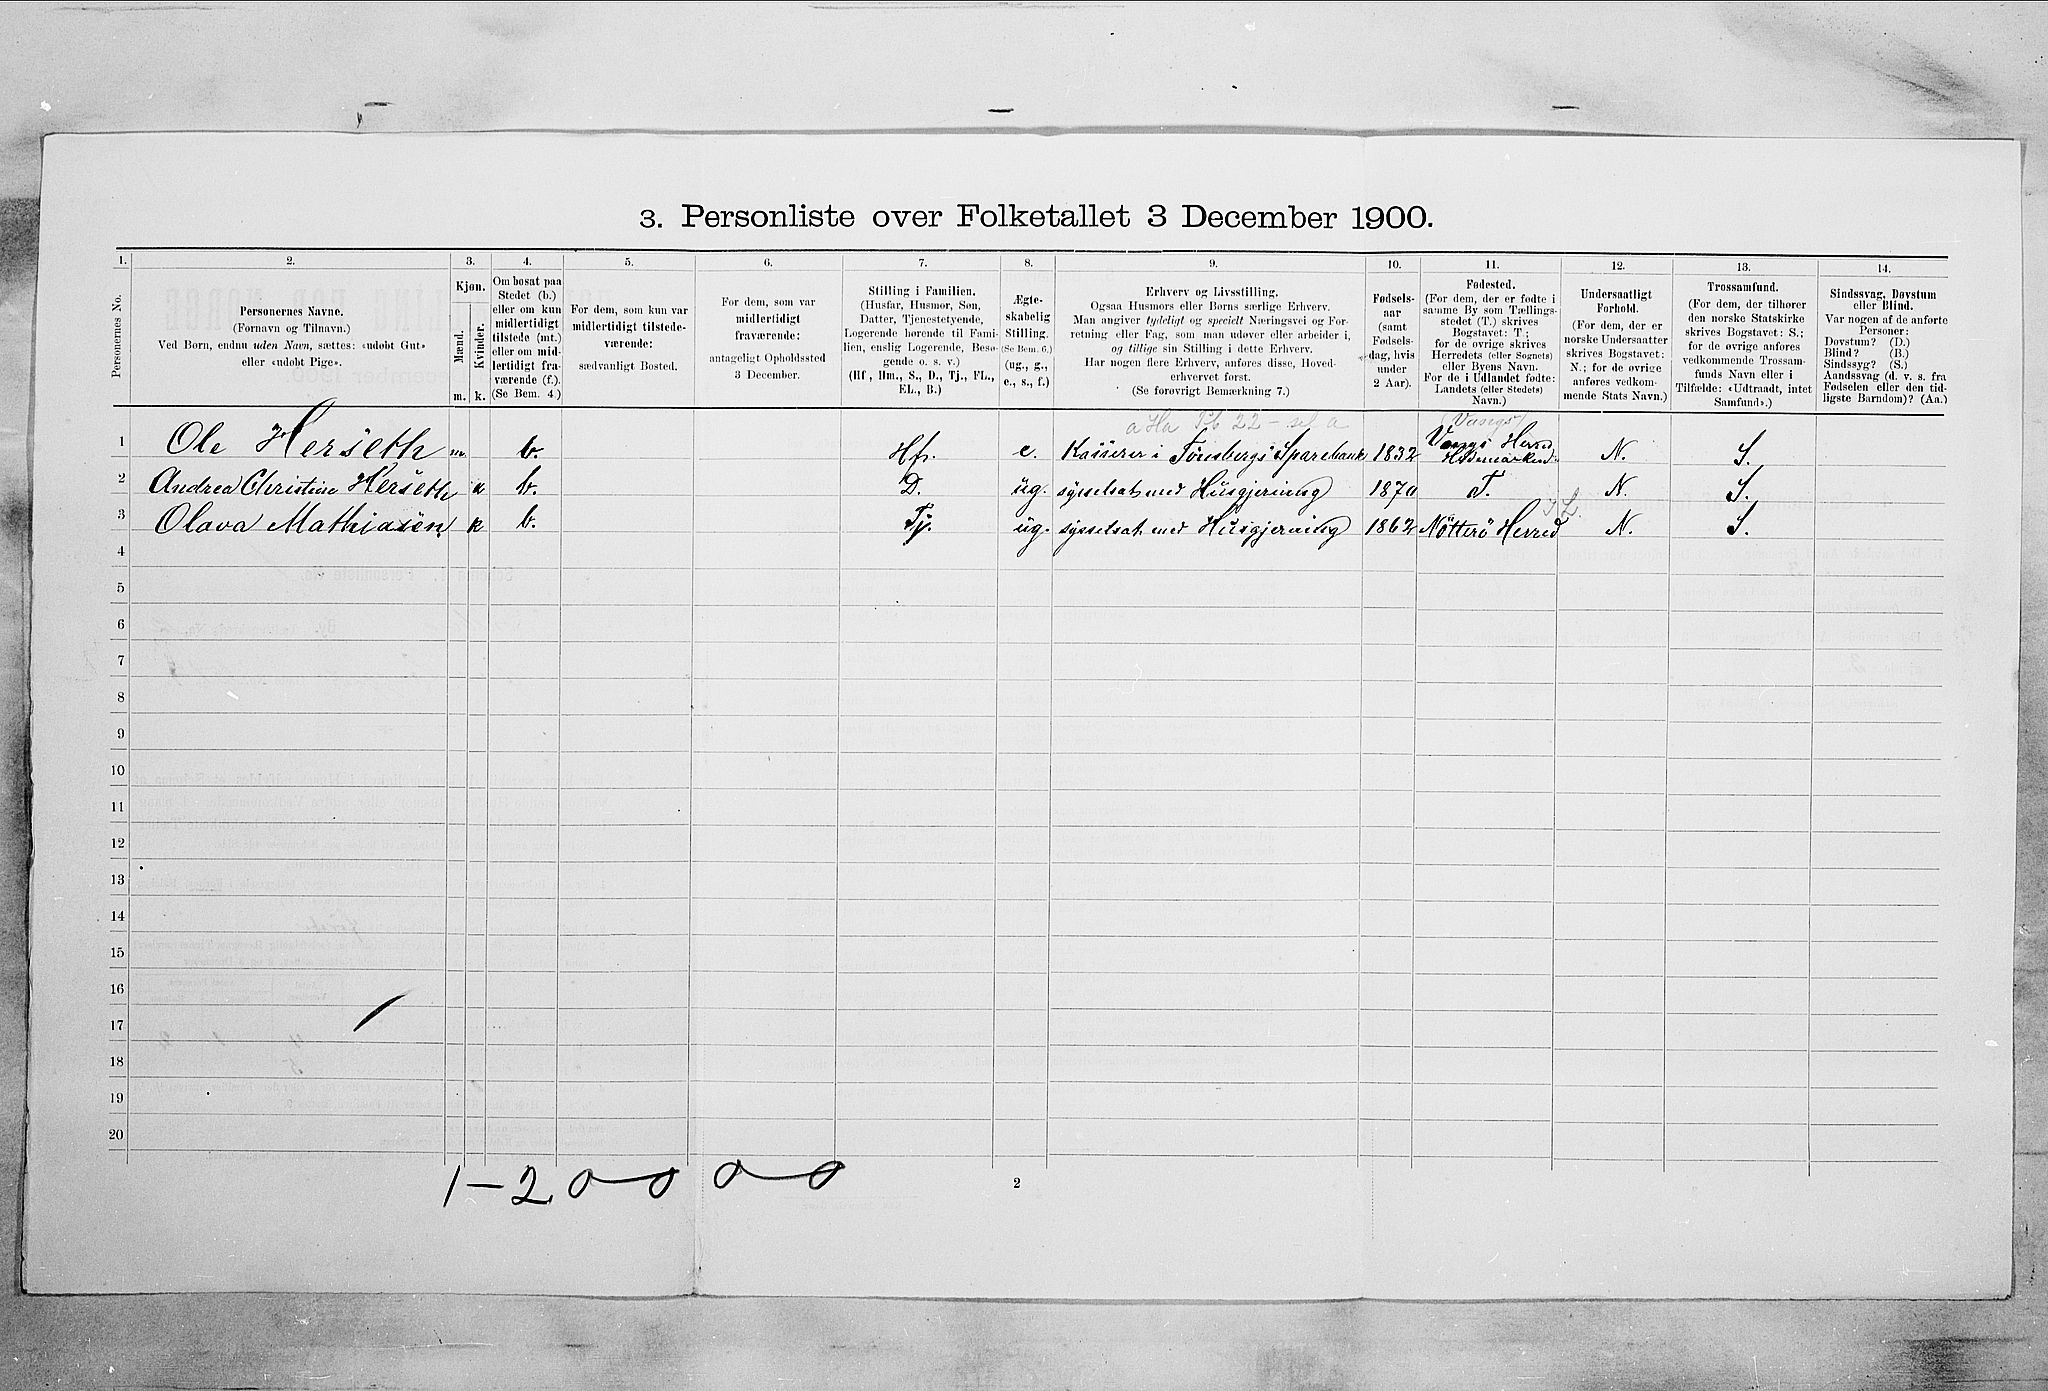 3. Personliste over Folketallet 3 December 1900.
1. 2. 3. 4. 5. 6. 7. 8. 9. 10. 11. 12. 13. 14.
Personernes No.
Personernes Navne.
(Fornavn og Tilnavn.)
Ved Børn, endnu uden Navn, sættes: «udøbt Gut»
eller «udøbt Pige».
Kjøn.
Mænd.
Kvinder.
m. k.
Om bosat paa
Stedet (b.)
eller om kun
midlertidigt
tilstede (mt.)
eller om mid-
lertidigt fra-
værende (f.).
(Se Bem. 4.)
For dem, som kun var
midlertidigt tilstede-
værende:
sædvanligt Bosted.
For dem, som var
midlertidigt
fraværende:
antageligt Opholdssted
3 December.
Stilling i Familien.
(Husfar, Husmor, Søn,
Datter, Tjenestetyende,
Logerende hørende til Fami-
lien, enslig Logerende, Besø-
gende o. s. v.)
(Hf., Hm., S., D., Tj., FL.,
EL., B.)
Ægte-
skabelig
Stilling.
(Se Bem. 6.)
(ug., g.,
e., s., f.)
Erhverv og Livsstilling.
Ogsaa Husmors eller Børns særlige Erhverv.
Man angiver tydeligt og specielt Næringsvei og For-
retning eller Fag, som man udøver eller arbeider i,
og tillige sin Stilling i dette Erhverv.
Har nogen flere Erhverv, anføres disse, Hoved-
erhvervet først.
(Se forøvrigt Bemærkning 7.)
Fødsels-
aar
(samt
Fødsels-
dag, hvis
under
2 Aar).
Fødested.
(For dem, der er fødte i
samme By som Tællings-
stedet (T.) skrives
Bogstavet: T.;
for de øvrige skrives
Herredets (eller Sognets)
eller Byens Navn.
For de i Udlandet fødte:
Landets (eller Stedets)
Navn.)
Undersaatligt
Forhold.
(For dem, der er
norske Undersaatter
skrives Bogstavet:
N.; for de øvrige
anføres vedkom-
mende Stats Navn.)
Trossamfund.
(For dem, der tilhører
den norske Statskirke
skrives Bogstavet: S.;
for de øvrige anføres
vedkommende Trossam-
funds Navn eller i
Tilfælde: «Udtraadt, intet
Samfund».)
Sindssvag, Døvstum
eller Blind.
Var nogen af de anførte
Personer:
Døvstum? (D.)
Blind? (B.)
Sindssyg? (S.)
Aandssvag (d. v. s. fra
Fødselen eller den tid-
ligste Barndom)? (Aa.)
1 Ole Herseth m. b. Hf. e. Kasserer i Tønsbergs Sparebank 1832 Vangs Herred Hedemarken N. S.
2 Andrea Christine Herseth k b. D. ug. sysselsat med Husgjerning 1870 T. N. S.
3 Olava Mathiasen k b. Tj. ug. sysselsat med Husgjerning 1862 Nötterö Herred N. S.
4
5
6
7
8
9
10
11
12
13
14
15
16
17
18
19
20
1-2
2